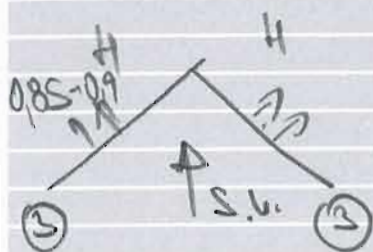 H H
0,85-0,9
S.V.
3 3